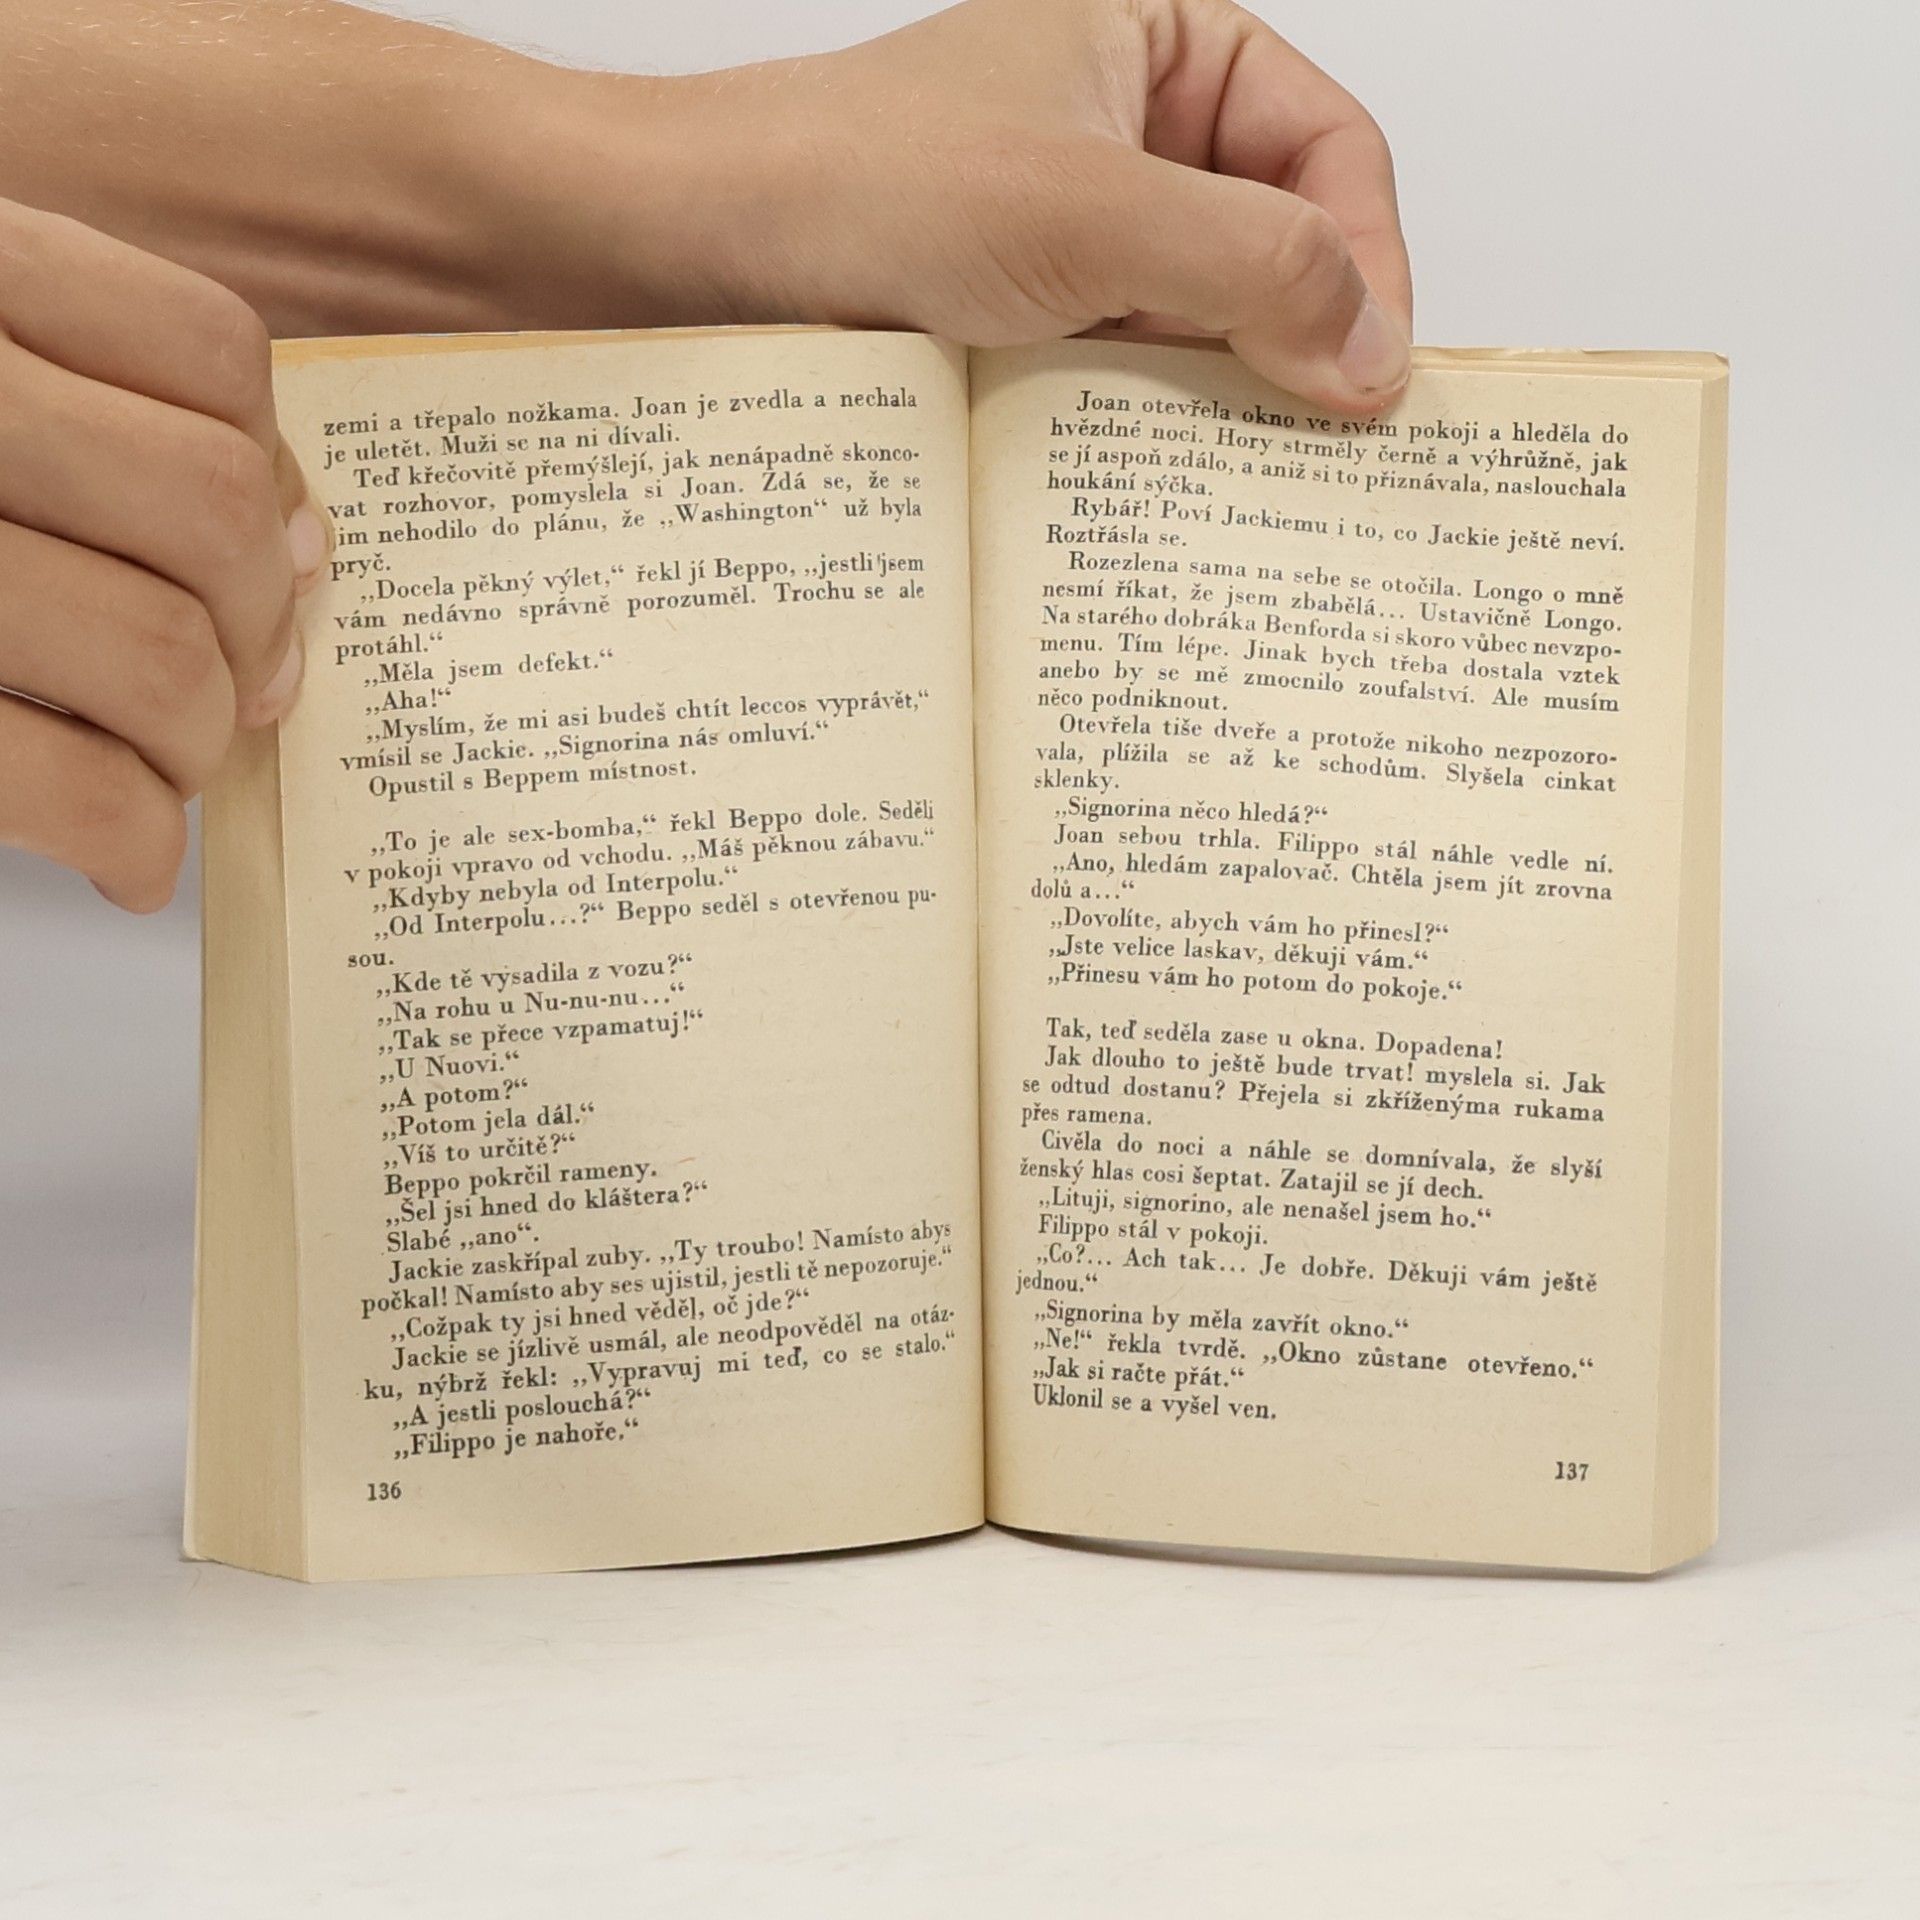 zemi a třepalo nožkama. Joan je zvedla a nechala
je uletět. Muži se na ni dívali.
Teď křečovitě přemýšlejí, jak nenápadně skonco-
vat rozhovor, pomyslela si Joan. Zdá se, že se
jim nehodilo do plánu, že „Washington“ už byla
pryč.
„Docela pěkný výlet,“ řekl jí Beppo, „jestli jsem
vám nedávno správně porozuměl. Trochu se ale
protáhl.“
„Měla jsem defekt.“
„Aha!“
„Myslím, že mi asi budeš chtít leccos vyprávět,“
vmísil se Jackie. „Signorina nás omluví.“
Opustil s Beppem místnost.
„To je ale sex-bomba,“ řekl Beppo dole. Seděli
v pokoji vpravo od vchodu. „Máš pěknou zábavu.“
„Kdyby nebyla od Interpolu.“
„Od Interpolu...?“ Beppo seděl s otevřenou pu-
sou.
„Kde tě vysadila z vozu?“
„Na rohu u Nu-nu-nu...“
„Tak se přece vzpamatuj!“
„U Nuovi.“
„A potom?“
„Potom jela dál.“
„Víš to určitě?“
Beppo pokrčil rameny.
„Šel jsi hned do kláštera?“
Slabé „ano“.
Jackie zaskřípal zuby. „Ty troubo! Namísto abys
počkal! Namísto aby ses ujistil, jestli tě nepozoruje.“
„Cožpak ty jsi hned věděl, oč jde?“
Jackie se jízlivě usmál, ale neodpověděl na otáz-
ku, nýbrž řekl: „Vypravuj mi teď, co se stalo.“
„A jestli poslouchá?“
„Filippo je nahoře.“
136
Joan otevřela okno ve svém pokoji a hleděla do
hvězdné noci. Hory strměly černě a výhrůžně, jak
se jí aspoň zdálo, a aniž si to přiznávala, naslouchala
houkání sýčka.
Rybář! Poví Jackiemu i to, co Jackie ještě neví.
Roztřásla se.
Rozezlena sama na sebe se otočila. Longo o mně
nesmí říkat, že jsem zbabělá... Ustavičně Longo.
Na starého dobráka Benforda si skoro vůbec nevzpo-
menu. Tím lépe. Jinak bych třeba dostala vztek
anebo by se mě zmocnilo zoufalství. Ale musím
něco podniknout.
Otevřela tiše dveře a protože nikoho nezpozoro-
vala, plížila se až ke schodům. Slyšela cinkat
sklenky.
„Signorina něco hledá?“
Joan sebou trhla. Filippo stál náhle vedle ní.
„Ano, hledám zapalovač. Chtěla jsem jít zrovna
dolů a...“
„Dovolíte, abych vám ho přinesl?“
„Jste velice laskav, děkuji vám.“
„Přinesu vám ho potom do pokoje.“
Tak, teď seděla zase u okna. Dopadena!
Jak dlouho to ještě bude trvat! myslela si. Jak
se odtud dostanu? Přejela si zkříženýma rukama
přes ramena.
Civěla do noci a náhle se domnívala, že slyší
ženský hlas cosi šeptat. Zatajil se jí dech.
„Lituji, signorino, ale nenašel jsem ho.“
Filippo stál v pokoji.
„Co?... Ach tak... Je dobře. Děkuji vám ještě
jednou.“
„Signorina by měla zavřít okno.“
„Ne!“ řekla tvrdě. „Okno zůstane otevřeno.“
„Jak si račte přát.“
Uklonil se a vyšel ven.
137